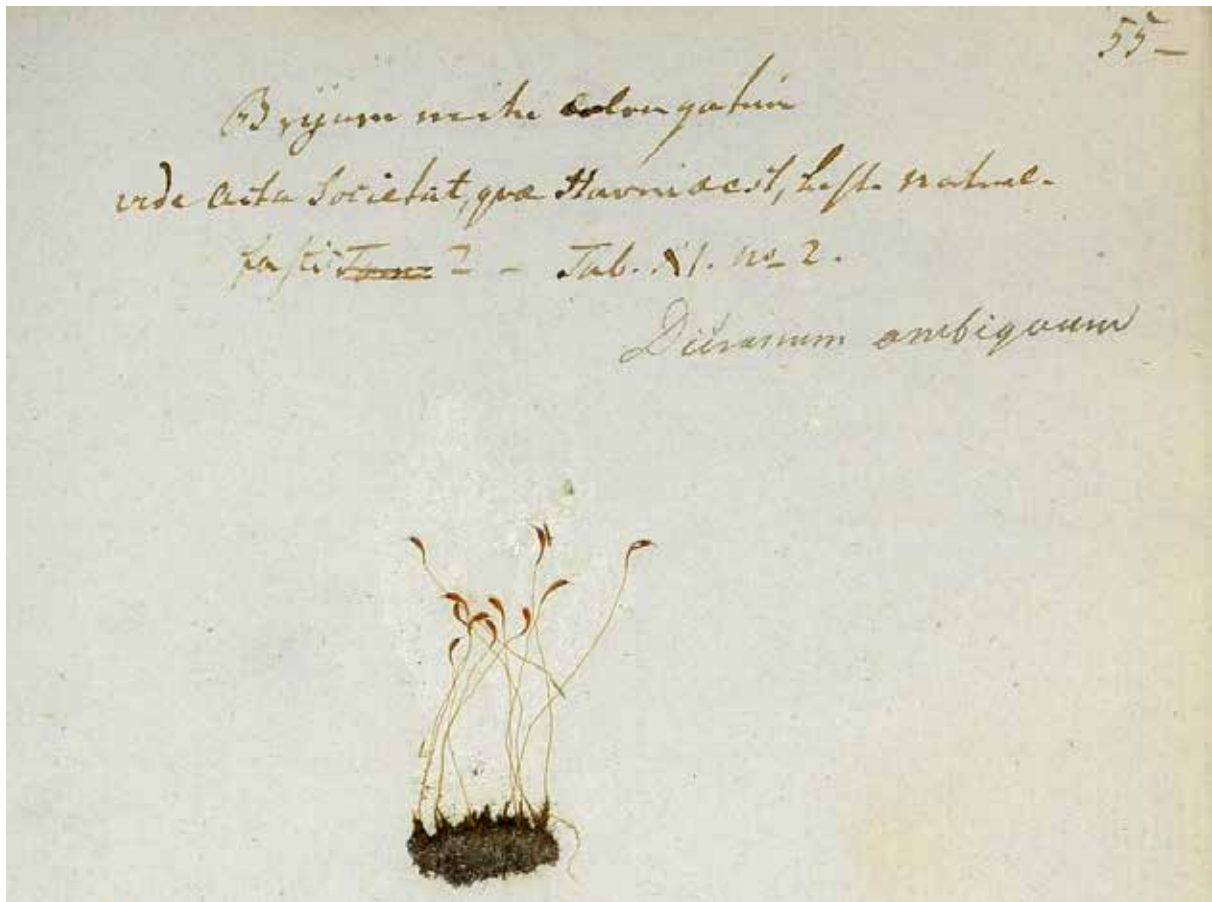 55-
Bryum mihi elongatum
vide Acta Societat, quæ Havniæ est, hist. natural.
Tab. XI. no 2.
Dicranum ambiguum